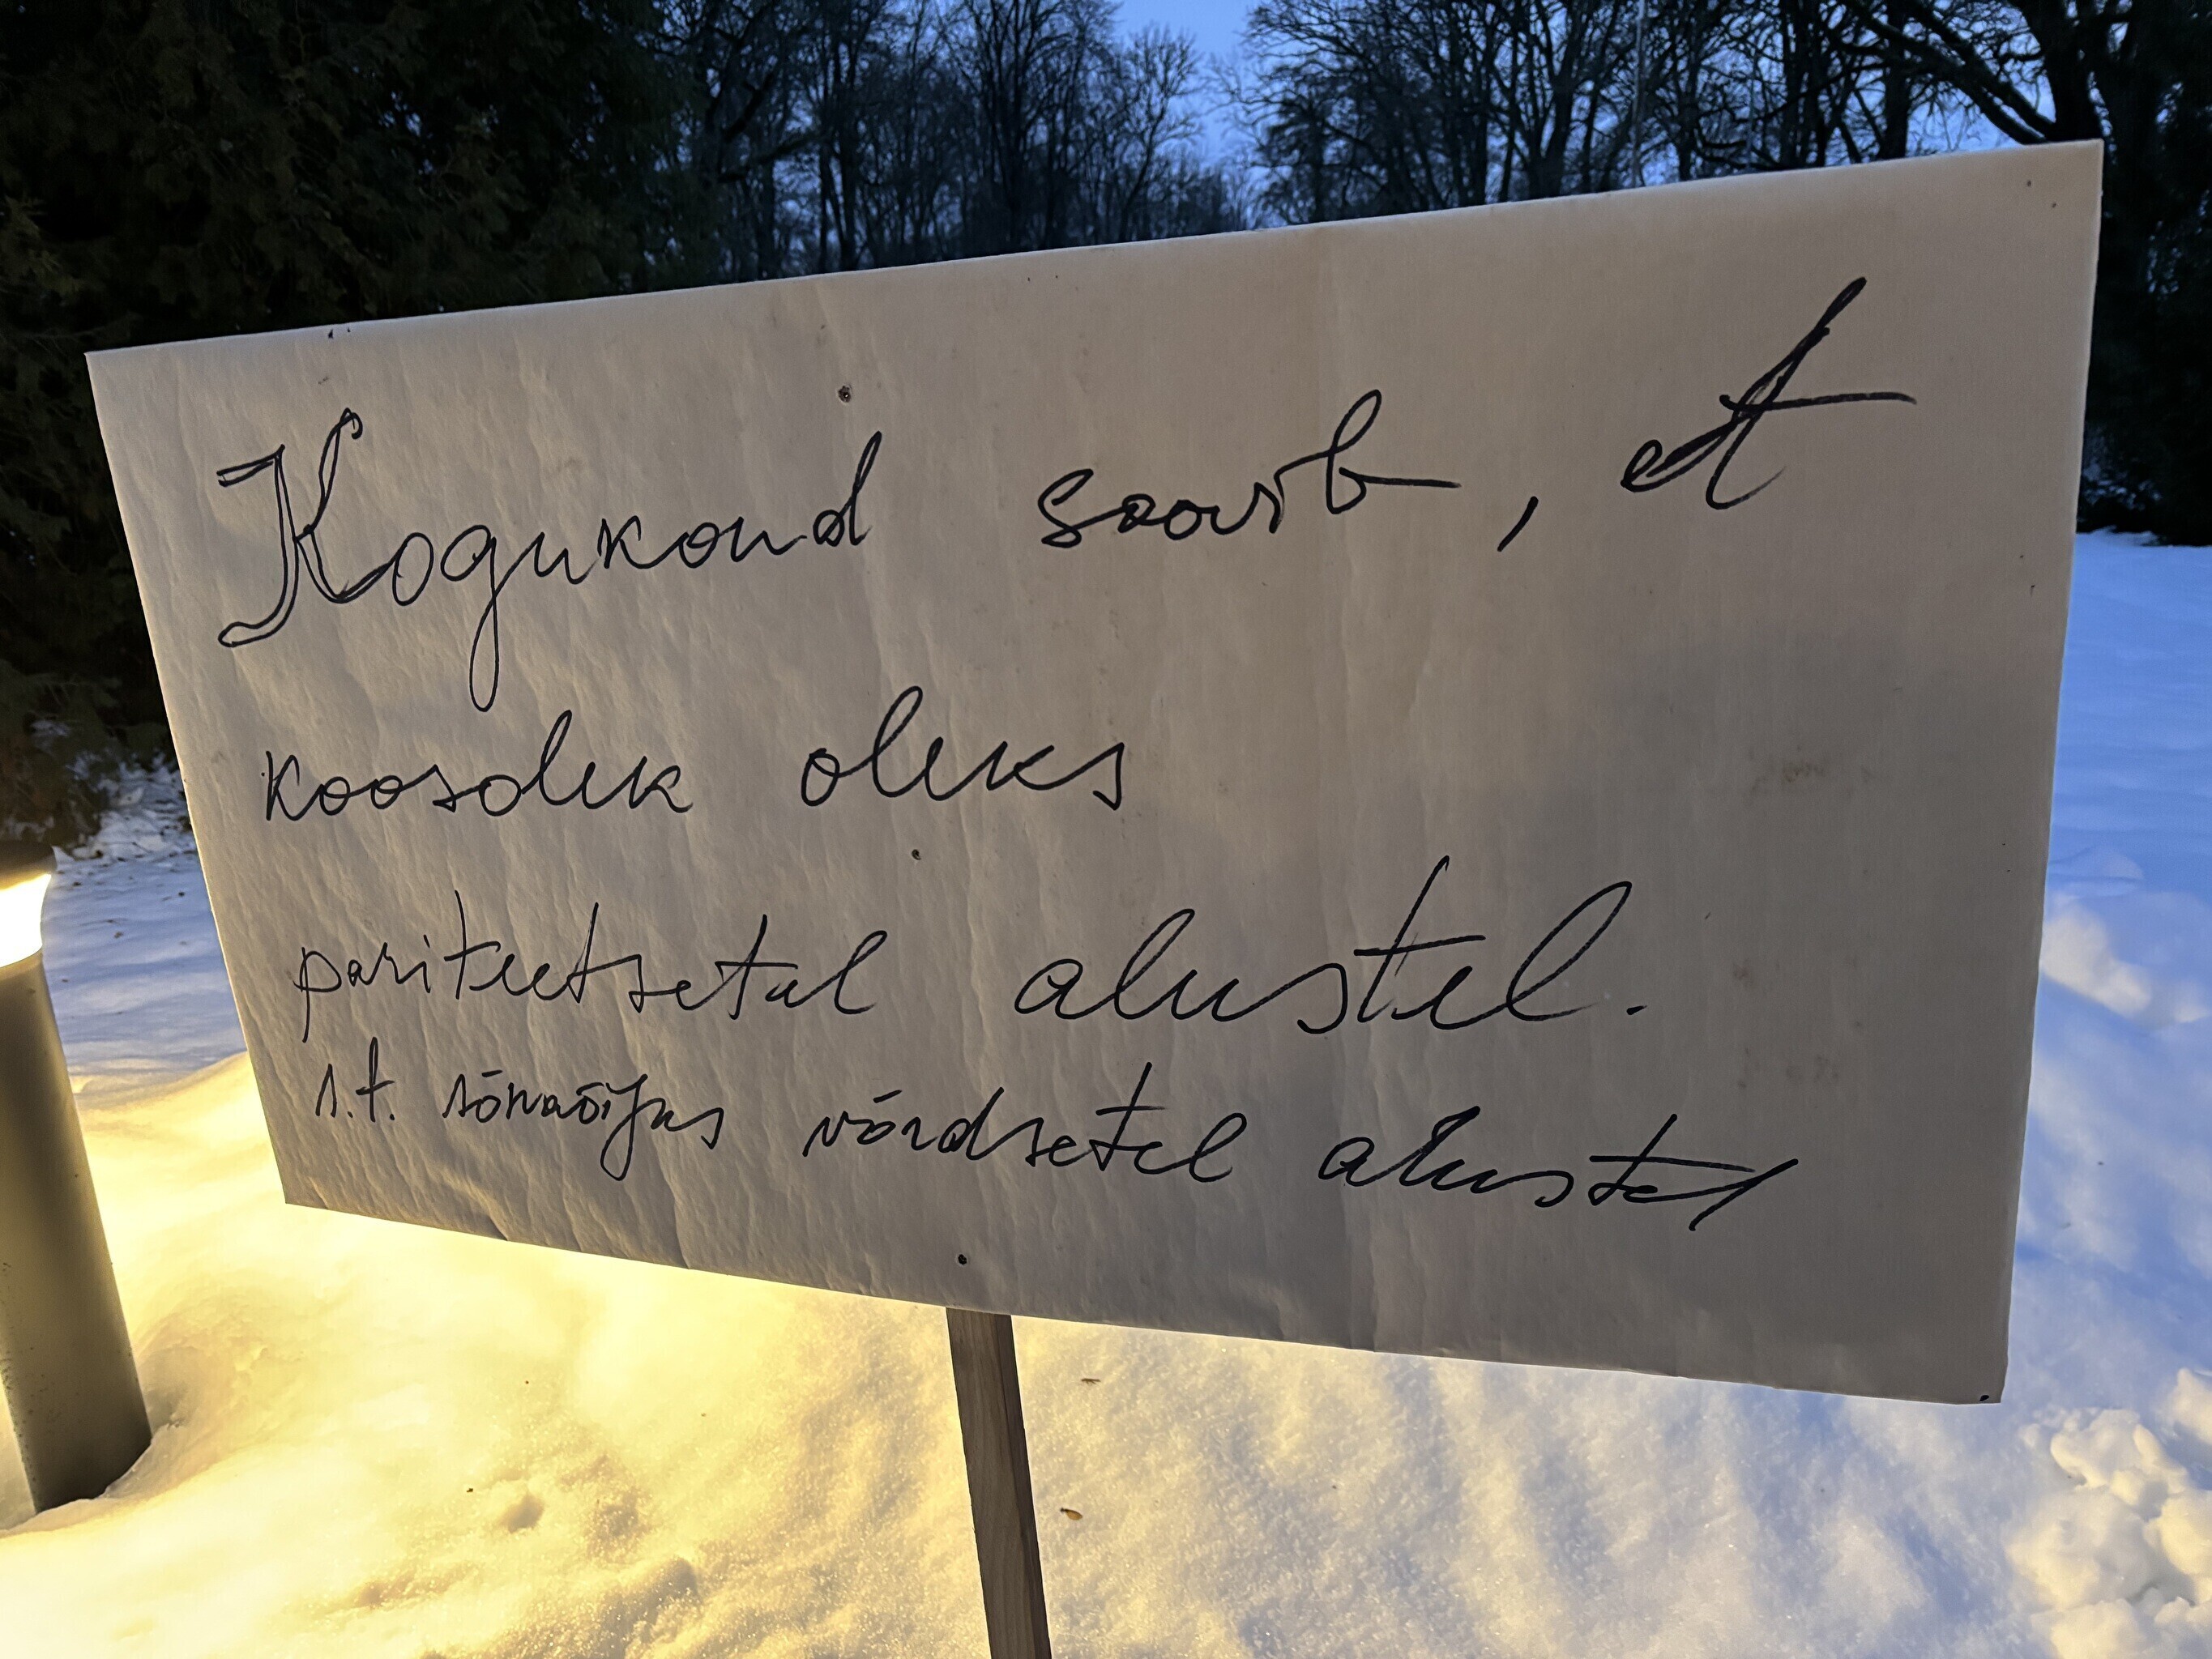 Kogukond soovib, et
koosolek oleks
pariteetsetel alustel.
s.t. sõnaõigus võrdsetel alustel